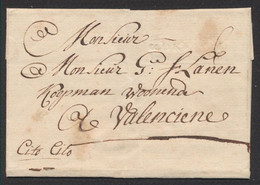 Monsieur
a Monsieur G: f Lanen
Koopman Woonende
a Valenciene
Cito Cito